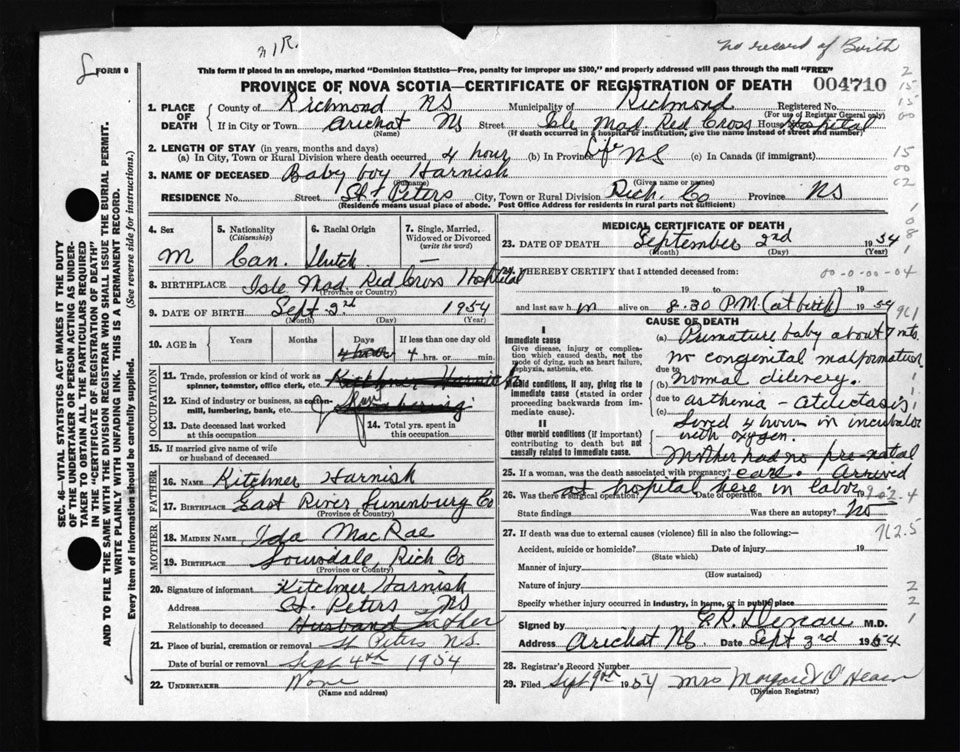 no record of Birth
FORM 6
This form if placed in an envelope, marked "Dominion Statistics—Free, penalty for improper use $300," and properly addressed will pass through the mail "FREE"
PROVINCE OF NOVA SCOTIA—CERTIFICATE OF REGISTRATION OF DEATH 004710
1. PLACE OF DEATH County of Richmond, NS Municipality of Richmond Registered No.
(For use of Registrar General only)
If in City or Town Arichat NS Street Isle Mad. Red Cross House Hospital
(Name) (If death occurred in a hospital or institution, give the name instead of street and number)
2. LENGTH OF STAY (in years, months and days)
(a) In City, Town or Rural Division where death occurred 4 hour (b) In Province Life NS (c) In Canada (if immigrant)
3. NAME OF DECEASED Baby boy Harnish
(Surname) (Given name or names)
RESIDENCE No. Street St Peters City, Town or Rural Division Rich. Co Province NS
(Residence means usual place of abode. Post Office Address for residents in rural parts not sufficient)
4. Sex 5. Nationality (Citizenship) 6. Racial Origin 7. Single, Married, Widowed or Divorced (write the word)
M Can. Dutch —
8. BIRTHPLACE Isle Mad Red Cross Hospital
(Province or Country)
9. DATE OF BIRTH Sept 2nd 1954
(Month) (Day) (Year)
10. AGE in Years Months Days If less than one day old
4 hours 4 hrs. or min.
11. Trade, profession or kind of work as spinner, teamster, office clerk, etc. Kitchner Harnish
12. Kind of industry or business, as cotton-mill, lumbering, bank, etc.
13. Date deceased last worked at this occupation 14. Total yrs. spent in this occupation
OCCUPATION
15. If married give name of wife or husband of deceased
FATHER
16. Name Kitchner Harnish
17. Birthplace East River Lunenburg Co
(Province or Country)
MOTHER
18. Maiden Name Ida MacRae
19. Birthplace Rich Co
(Province or Country)
20. Signature of informant Kitchner Harnish
Address St. Peters NS
Relationship to deceased Husband Father
21. Place of burial, cremation or removal St Peters N.S.
Date of burial or removal Sept 4th 1954
22. Undertaker None
(Name and address)
MEDICAL CERTIFICATE OF DEATH
23. DATE OF DEATH September 2nd 1954
(Month) (Day) (Year)
24. I HEREBY CERTIFY that I attended deceased from:
00-0-00-04
19 to 19
and last saw h m alive on 8.30 PM (at birth) 1954
CAUSE OF DEATH
I
Immediate cause
Give disease, injury or complication which caused death, not the mode of dying, such as heart failure, asphyxia, asthenia, etc.
Morbid conditions, if any, giving rise to immediate cause (stated in order proceeding backwards from immediate cause).
II
Other morbid conditions (if important) contributing to death but not causally related to immediate cause.
(a) Premature baby about 7 mts.
no congenital malformation
due to
(b) normal dilivery.
due to asthenia - atelectasis
(c)
Lived 4 hours in incubator
with oxygen.
Mother had no pre-natal
care. Arrived
at hospital here in labor
25. If a woman, was the death associated with pregnancy?
26. Was there a surgical operation? Date of operation 19
State findings Was there an autopsy? No
27. If death was due to external causes (violence) fill in also the following:—
Accident, suicide or homicide? Date of injury 19
(State which)
Manner of injury
(How sustained)
Nature of injury
Specify whether injury occurred in industry, in home, or in public place
762.5
Signed by M.D.
Address Arichat NS Date Sept 3rd 1954
28. Registrar's Record Number
29. Filed Sept 9th 1954 Mrs Margaret O'Hearn
(Division Registrar)
SEC. 46—VITAL STATISTICS ACT MAKES IT THE DUTY
OF THE UNDERTAKER OR PERSON ACTING AS UNDER-
TAKER TO OBTAIN ALL THE PARTICULARS REQUIRED
IN THE "CERTIFICATE OF REGISTRATION OF DEATH"
AND TO FILE THE SAME WITH THE DIVISION REGISTRAR WHO SHALL ISSUE THE BURIAL PERMIT.
WRITE PLAINLY WITH UNFADING INK. THIS IS A PERMANENT RECORD.
Every item of information should be carefully supplied. (See reverse side for instructions.)